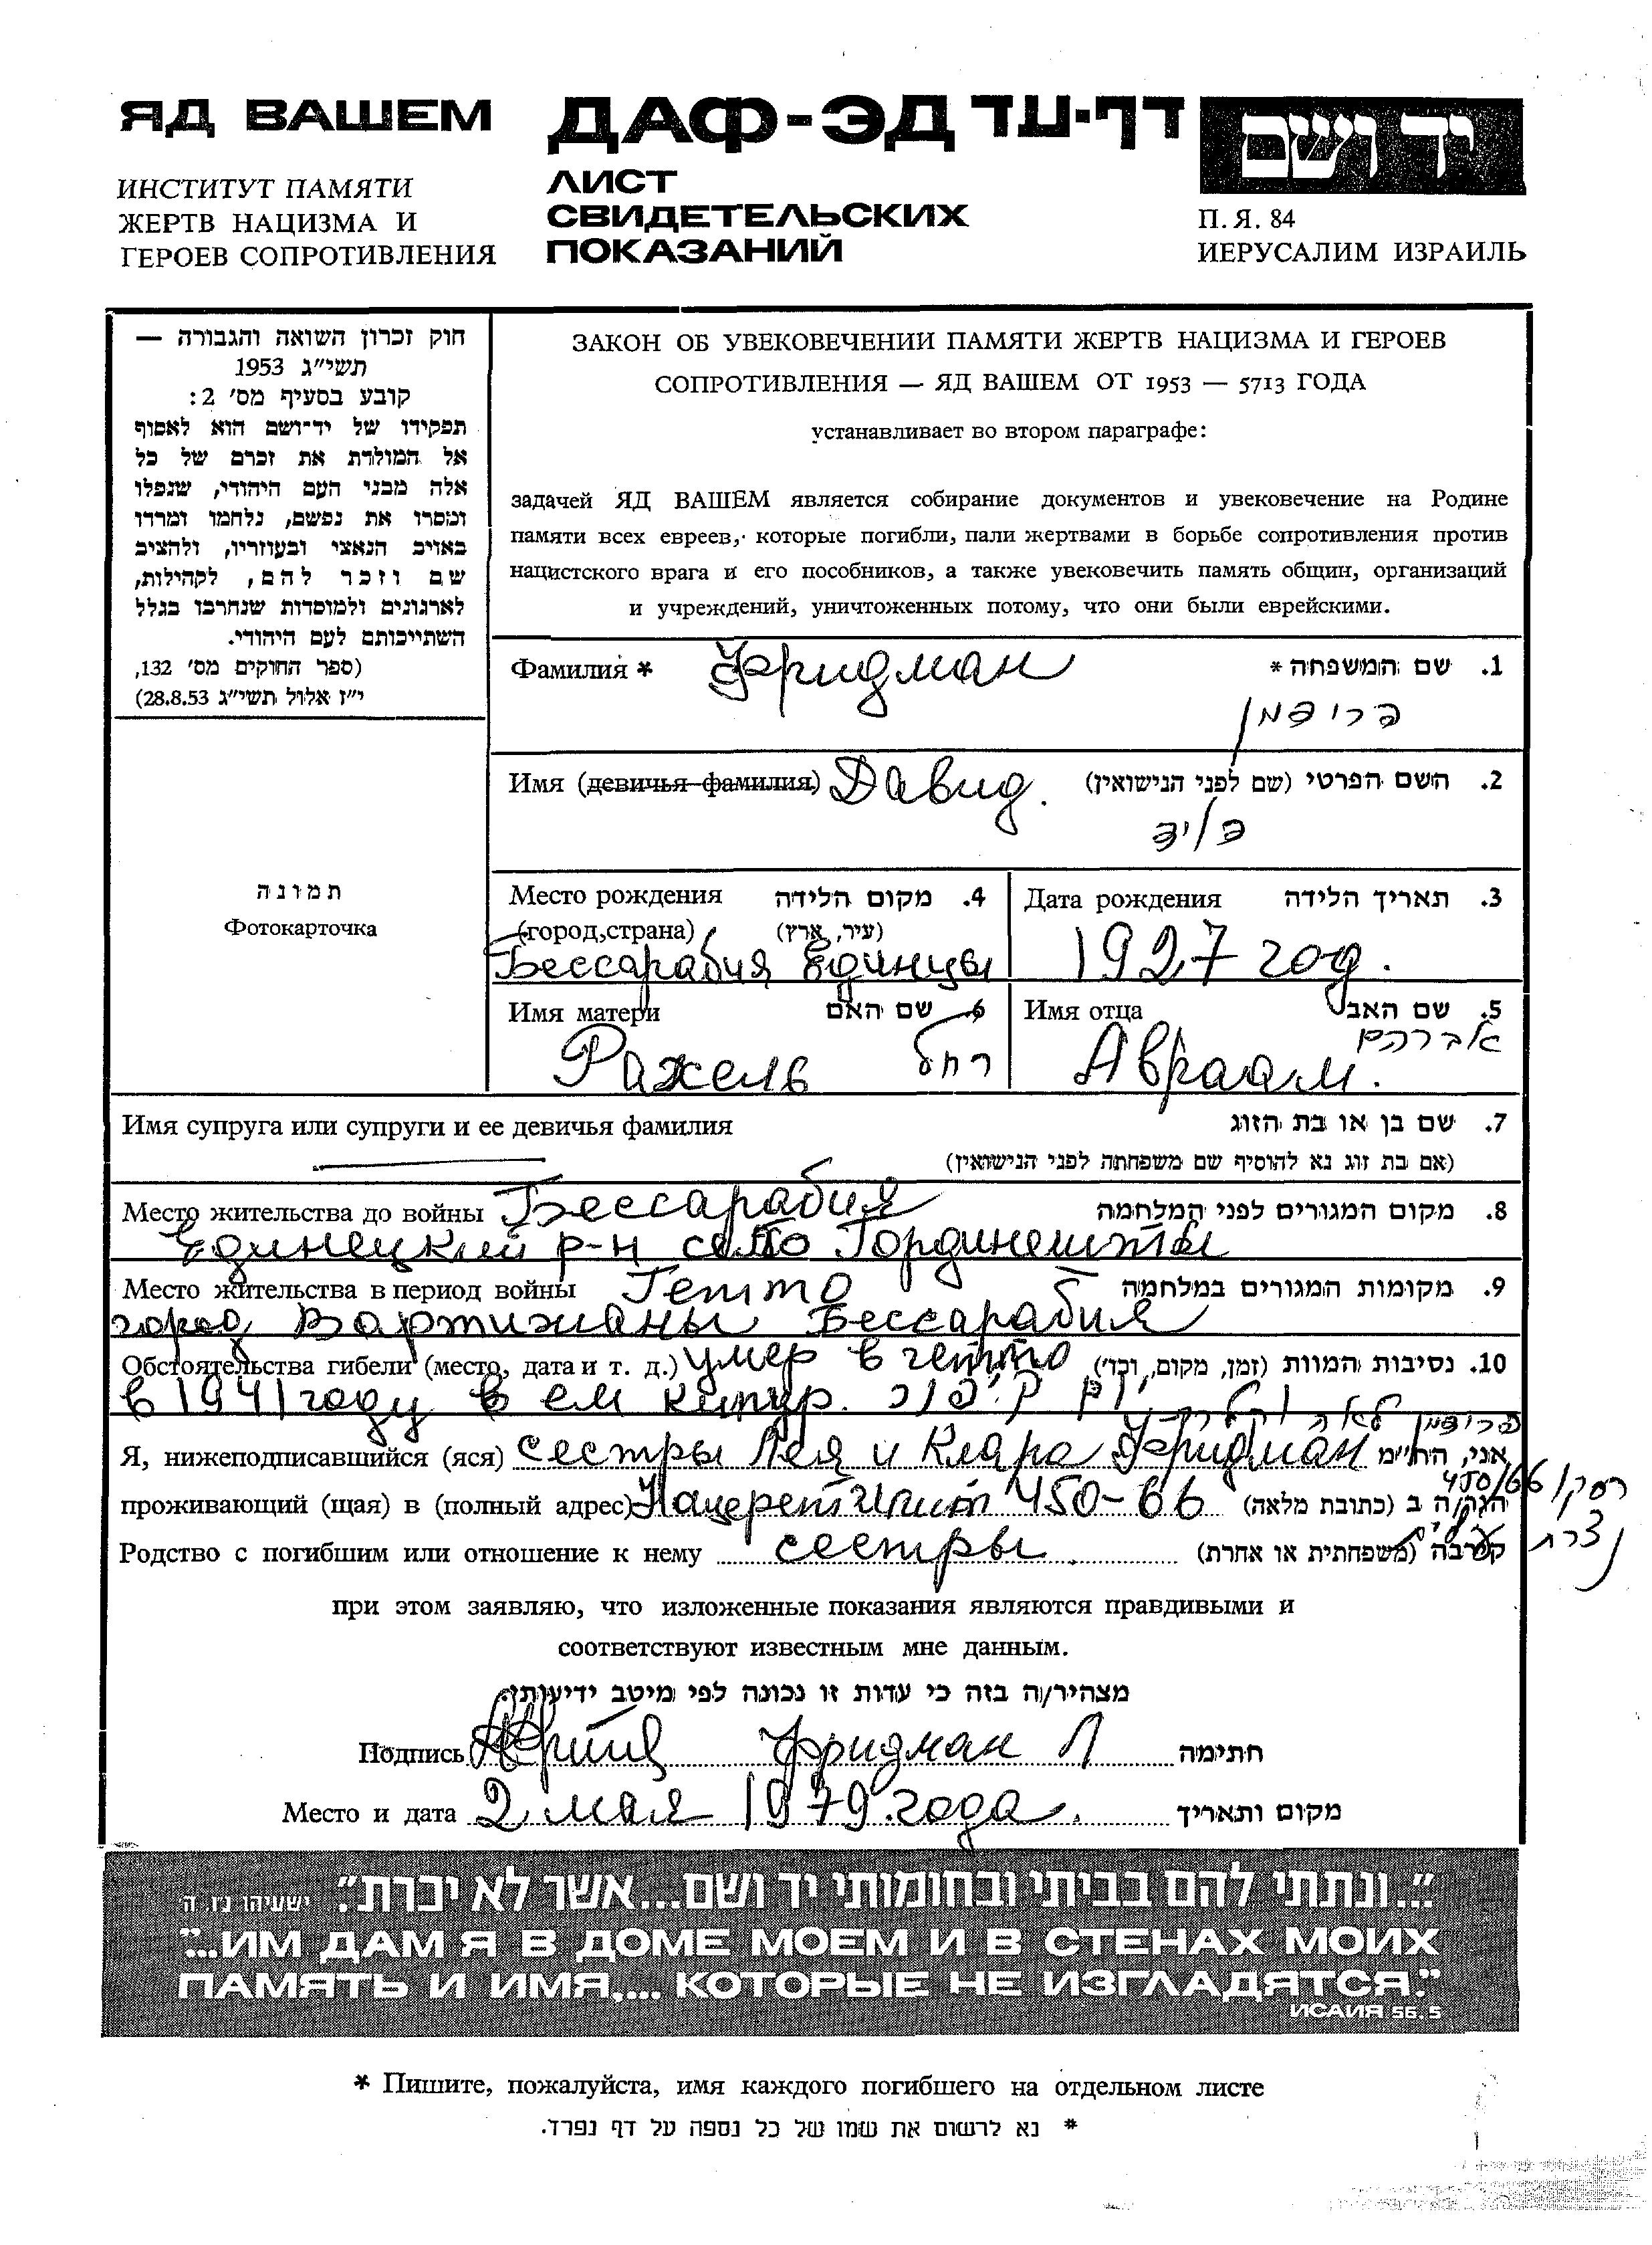 ЯД ВАШЕМ
ИНСТИТУТ ПАМЯТИ
ЖЕРТВ НАЦИЗМА И
ГЕРОЕВ СОПРОТИВЛЕНИЯ
ДАФ-ЭД דף-עד
ЛИСТ
СВИДЕТЕЛЬСКИХ
ПОКАЗАНИЙ
יד ושם
П. Я. 84
ИЕРУСАЛИМ ИЗРАИЛЬ
חוק זכרון השואה והגבורה —
תשי"ג 1953
קובע בסעיף מס' 2:
תפקידו של יד־ושם הוא לאסוף
אל המולדת את זכרם של כל
אלה מבני העם היהודי, שנפלו
ומסרו את נפשם, נלחמו ומרדו
באויב הנאצי ובעוזריו, ולהציב
שם וזכר להם, לקהילות,
לארגונים ולמוסדות שנחרבו בגלל
השתייכותם לעם היהודי.
(ספר החוקים מס' 132,
י"ז אלול תשי"ג 28.8.53)
ЗАКОН ОБ УВЕКОВЕЧЕНИИ ПАМЯТИ ЖЕРТВ НАЦИЗМА И ГЕРОЕВ
СОПРОТИВЛЕНИЯ — ЯД ВАШЕМ ОТ 1953 — 5713 ГОДА
устанавливает во втором параграфе:
задачей ЯД ВАШЕМ является собирание документов и увековечение на Родине
памяти всех евреев, которые погибли, пали жертвами в борьбе сопротивления против
нацистского врага и его пособников, а также увековечить память общин, организаций
и учреждений, уничтоженных потому, что они были еврейскими.
Фамилия * Фридман 1. שם המשפחה *
פרידמן
Имя (девичья фамилия) Давид. 2. השם הפרטי (שם לפני הנישואין)
דויד
תמונה
Фотокарточка
Место рождения 4. מקום הלידה
(город, страна) (עיר, ארץ)
Бессарабия Единцы
Дата рождения 3. תאריך הלידה
1927 год.
Имя матери 6. שם האם
Рахель רחל
Имя отца 5. שם האב
Авраам. אברהם
Имя супруга или супруги и ее девичья фамилия 7. שם בן או בת הזוג
(אם בת זוג נא להוסיף שם משפחתה לפני הנישואין)
Место жительства до войны Бессарабия 8. מקום המגורים לפני המלחמה
Единецкий р-н село Гординешты
Место жительства в период войны Гетто 9. מקומות המגורים במלחמה
город Вартижаны Бессарабия
Обстоятельства гибели (место, дата и т. д.) умер в гетто 10. נסיבות המוות (זמן, מקום, וכד')
в 1941 году в ем кипур. יום כיפור
פרידמן לאה וקלרה
Я, нижеподписавшийся (яся) сестры Лея и Клара Фридман אני, הח"מ
проживающий (щая) в (полный адрес) Нацерет Илит 450-66 הגר/ה ב (כתובת מלאה) 450/66
נצרת עלית
Родство с погибшим или отношение к нему сестры קרבה (משפחתית או אחרת)
при этом заявляю, что изложенные показания являются правдивыми и
соответствуют известным мне данным.
מצהיר/ה בזה כי עדות זו נכונה לפי מיטב ידיעותי.
Подпись Фридман Л חתימה
Место и дата 2 мая 1979 года. מקום ותאריך
"...ונתתי להם בביתי ובחומותי יד ושם...אשר לא יכרת". ישעיהו נו, ה'
"...ИМ ДАМ Я В ДОМЕ МОЕМ И В СТЕНАХ МОИХ
ПАМЯТЬ И ИМЯ,... КОТОРЫЕ НЕ ИЗГЛАДЯТСЯ."
ИСАИЯ 56.5
* Пишите, пожалуйста, имя каждого погибшего на отдельном листе
* נא לרשום את שמו של כל נספה על דף נפרד.